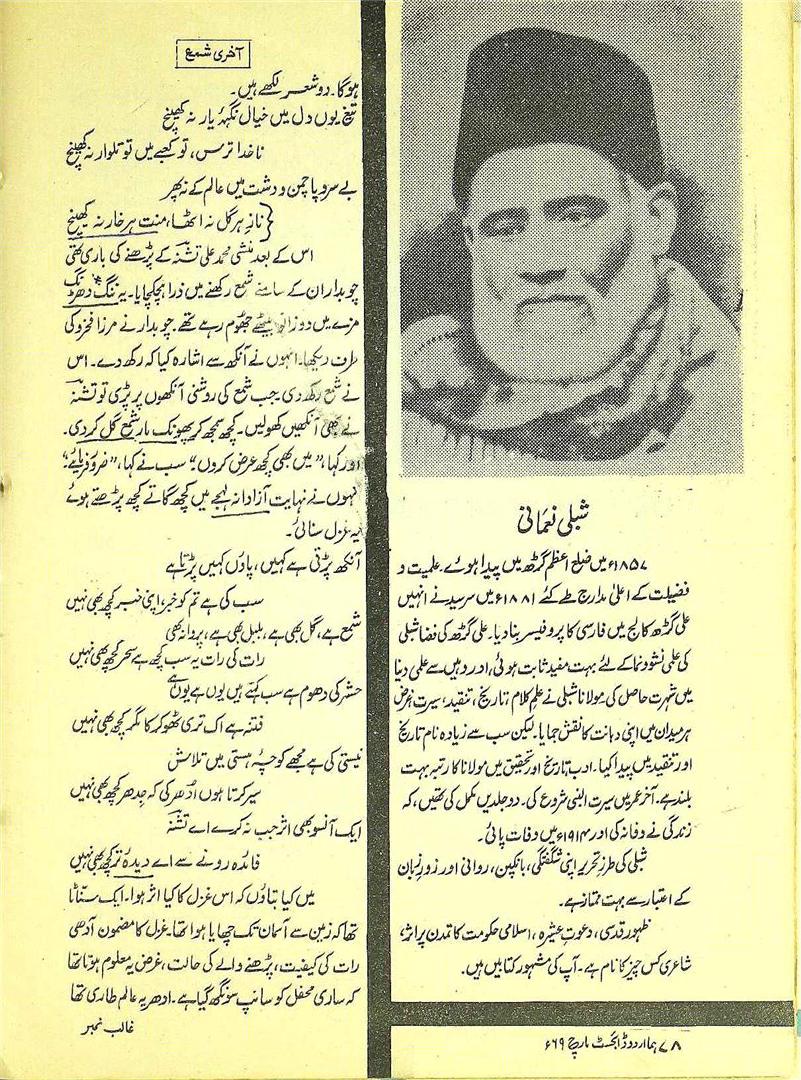 شبلی نعمانی
۱۸۵۷ء میں ضلع اعظم گڑھ میں پیدا ہوئے۔ علمیت و
فضیلت کے اعلیٰ مدارج طے کئے ۱۸۸۱ء میں سرسید نے انہیں
علی گڑھ کالج میں فارسی کا پروفیسر بنا دیا۔ علی گڑھ کی فضا شبلی
کی علمی نشوونما کے لئے بہت مفید ثابت ہوئی، اور وہیں سے علمی دنیا
میں شہرت حاصل کی مولانا شبلی نے علم کلام، تاریخ، تنقید، سیرت غرض
ہر میدان میں اپنی ذہانت کا نقش جمایا۔ لیکن سب سے زیادہ نام تاریخ
اور تنقید میں پیدا کیا۔ ادب، تاریخ اور تحقیق میں مولانا کا رتبہ بہت
بلند ہے۔ آخر عمر میں سیرت النبی شروع کی۔ دو جلدیں مکمل کی تھیں، کہ
زندگی نے وفا نہ کی اور ۱۹۱۴ء میں وفات پائی۔
شبلی کی طرز تحریر اپنی شگفتگی، بانکپن، روانی اور زورِ زبان
کے اعتبار سے بہت ممتاز ہے۔
ظہورِ قدسی، دعوتِ عشیرہ، اسلامی حکومت کا تمدن پر اثر،
شاعری کس چیز کا نام ہے۔ آپ کی مشہور کتابیں ہیں۔
۷۸ ہما اردو ڈائجسٹ مارچ ۶۹ء
آخری شمع
ہوگا۔ دو شعر لکھے ہیں۔
تیغ یوں دل میں خیال نگہِ یار نہ کھینچ
ناخدا ترس، تو کعبے میں تو تلوار نہ کھینچ
بے سر و پا چمن و دشت میں عالم کے نہ پھر
نازِ ہر گل نہ اٹھا، منتِ ہر خار نہ کھینچ
اس کے بعد منشی محمد علی تشنہ کے پڑھنے کی باری تھی
چوبدار ان کے سامنے شمع رکھنے میں ذرا ہچکچایا۔ یہ ننگ دھڑنگ
مزے میں دوزانو بیٹھے جھوم رہے تھے۔ چوبدار نے مرزا فخرو کی
طرف دیکھا۔ انہوں نے آنکھ سے اشارہ کیا کہ رکھ دے۔ اس
نے شمع رکھ دی۔ جب شمع کی روشنی آنکھوں پر پڑی تو تشنہ
نے بھی آنکھیں کھولیں۔ کچھ سمجھ کر پھونک مار شمع گل کر دی۔
اور کہا، ”میں بھی کچھ عرض کروں؟“ سب نے کہا، ”ضرور فرمایئے“
انہوں نے نہایت آزادانہ لہجے میں کچھ گاتے کچھ پڑھتے ہوئے
یہ غزل سنائی۔
آنکھ پڑتی ہے کہیں، پاؤں کہیں پڑتا ہے
سب کی ہے تم کو خبر، اپنی خبر کچھ بھی نہیں
شمع ہے، گل بھی ہے، بلبل بھی ہے، پروانہ بھی
رات کی رات یہ سب کچھ ہے سحر کچھ بھی نہیں
حشر کی دھوم ہے سب کہتے ہیں یوں ہے یوں ہے
فتنہ ہے اک تری ٹھوکر کا مگر کچھ بھی نہیں
نیستی کی ہے مجھے کوچۂ ہستی میں تلاش
سیر کرتا ہوں اُدھر کی کہ جدھر کچھ بھی نہیں
ایک آنسو بھی اثر جب نہ کرے اے تشنہ
فائدہ رونے سے اے دیدۂ تر کچھ بھی نہیں
میں کیا بتاؤں کہ اس غزل کا کیا اثر ہوا۔ ایک سنّاٹا
تھا کہ زمین سے آسمان تک چھایا ہوا تھا۔ غزل کا مضمون آدھی
رات کی کیفیت، پڑھنے والے کی حالت، غرض یہ معلوم ہوتا تھا
کہ ساری محفل کو سانپ سونگھ گیا ہے۔ ادھر یہ عالم طاری تھا
غالب نمبر